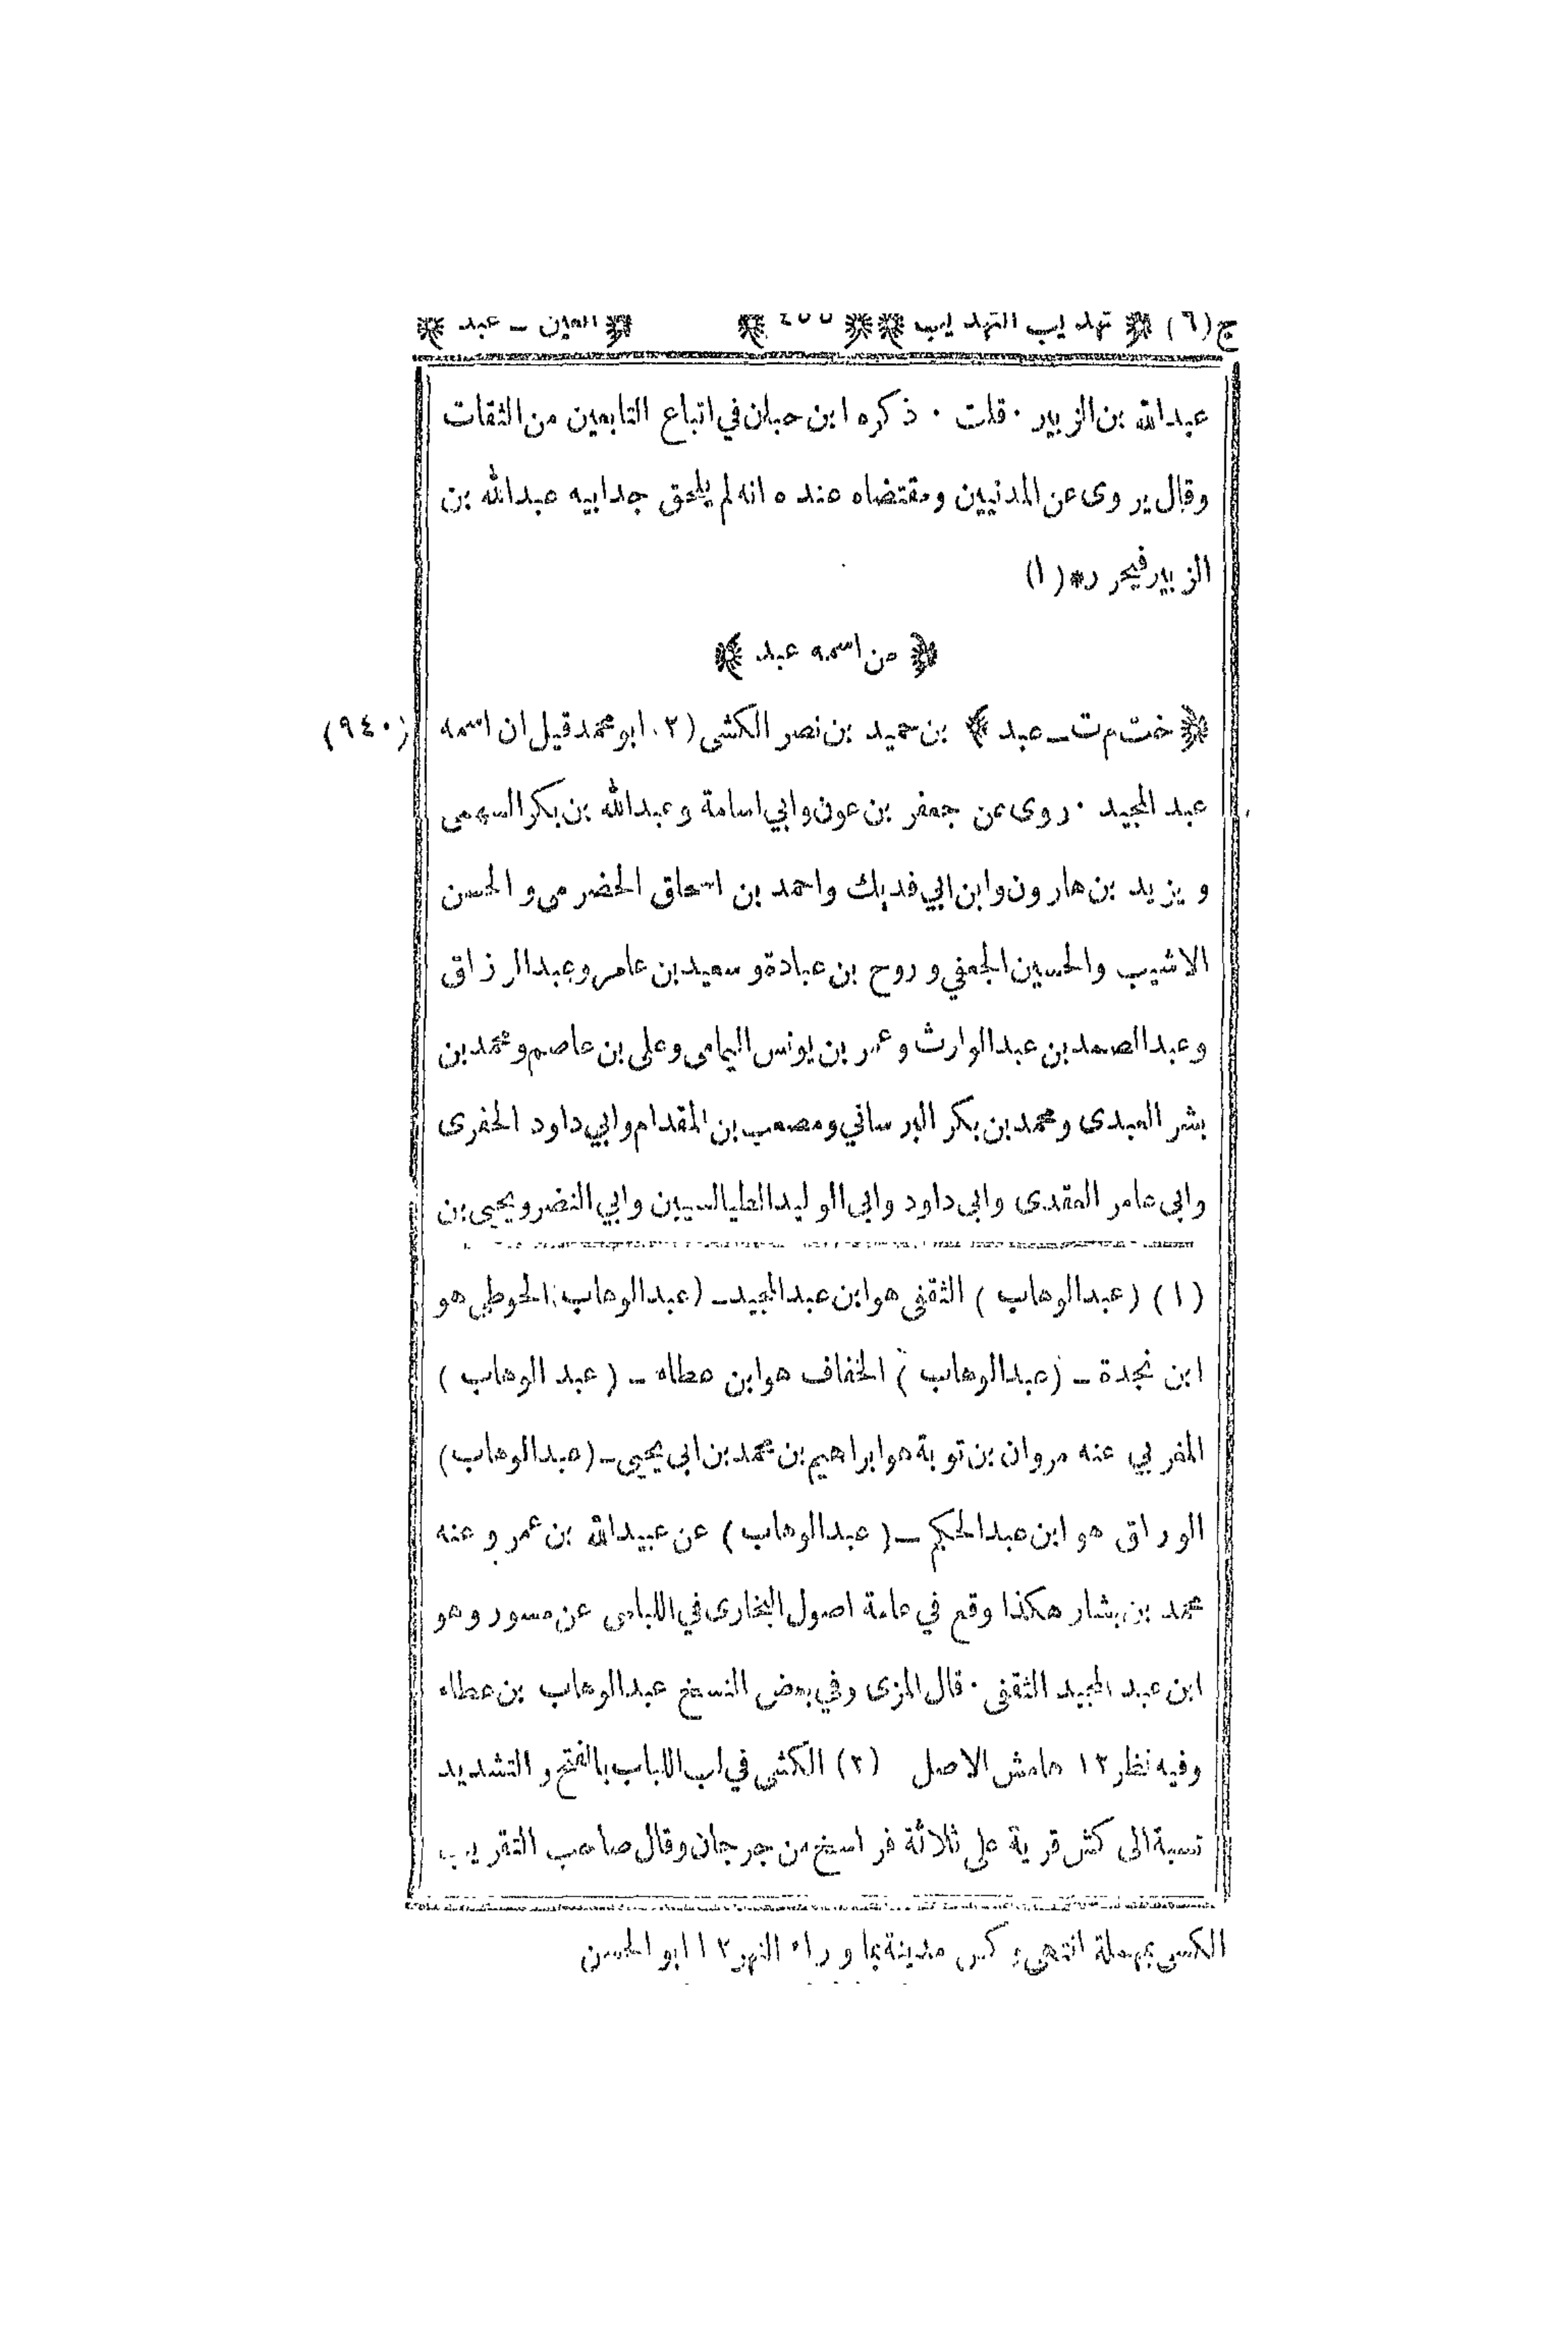 ج(٦) ﴿ تهذيب التهذيب ﴾ ﴿ ٤٥٥ ﴾ ﴿ العين ـ عبد ﴾
عبدالله بن الزبير . قلت . ذكره ابن حبان في اتباع التابعين من الثقات
وقال يروى عن المدنيين ومقتضاه عنده انه لم يلحق جد ابيه عبدالله بن
الزبير فيحرر * (١)
﴿ من اسمه عبد ﴾
﴿ خت م ت ـ عبد ﴾ بن حميد بن نصر الكشى (٢) ابو محمد قيل ان اسمه (٩٤٠)
عبد المجيد . روى عن جعفر بن عون وابي اسامة وعبدالله بن بكر السهمى
ويزيد بن هارون وابن ابي فديك واحمد بن اسحاق الحضرمى والحسن
الاشيب والحسين الجعفي وروح بن عبادة وسعيد بن عامر وعبدالرزاق
وعبدالصمد بن عبدالوارث وعمر بن يونس اليمامى وعلى بن عاصم ومحمد بن
بشر العبدى ومحمد بن بكر البرساني ومصعب بن المقدام وابي داود الحفرى
وابى عامر العقدى وابى داود وابى الوليد الطيالسيين وابي النضر ويحيى بن
(١) (عبدالوهاب) الثقفى هو ابن عبدالمجيد ـ (عبدالوهاب) الحوطي هو
ابن نجدة ـ (عبدالوهاب) الخفاف هو ابن عطاء ـ (عبد الوهاب)
المغربي عنه مروان بن توبة هو ابراهيم بن محمد بن ابى يحيى ـ (عبدالوهاب)
الوراق هو ابن عبدالحكم ـ (عبدالوهاب) عن عبيدالله بن عمر وعنه
محمد بن بشار هكذا وقع في عامة اصول البخارى في اللباس عن مسور وهو
ابن عبد المجيد الثقفى . قال المزى وفي بعض النسخ عبدالوهاب بن عطاء
وفيه نظر ١٢ هامش الاصل (٢) الكشى في لب اللباب بالفتح والتشديد
نسبة الى كش قرية على ثلاثة فراسخ من جرجان وقال صاحب التقريب
الكسى بمهملة انتهى وكس مدينة بما وراء النهر ١٢ ابو الحسن